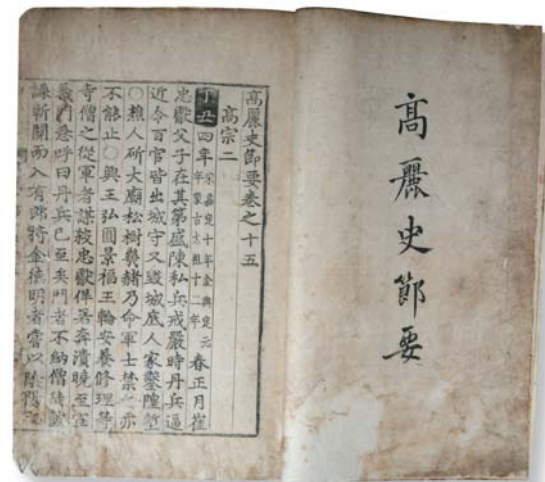 高麗史節要
高麗史節要卷之十五
高宗二
丁丑四年宋嘉定十年金興定元年蒙古太祖十二年春正月崔
忠獻父子在其第盛陳私兵戒嚴時丹兵逼
近令百官皆出城守又毁城底人家鑿隍塹
○樵人斫大廟松樹幾赭乃命軍士禁之亦
不能止○興王弘圓景福王輪安養修理等
寺僧之從軍者謀殺忠獻佯若奔潰曉至宣
義門急呼曰丹兵已至矣門者不納僧徒鼓
譟斬關而入有郎將金德明者嘗以陰陽